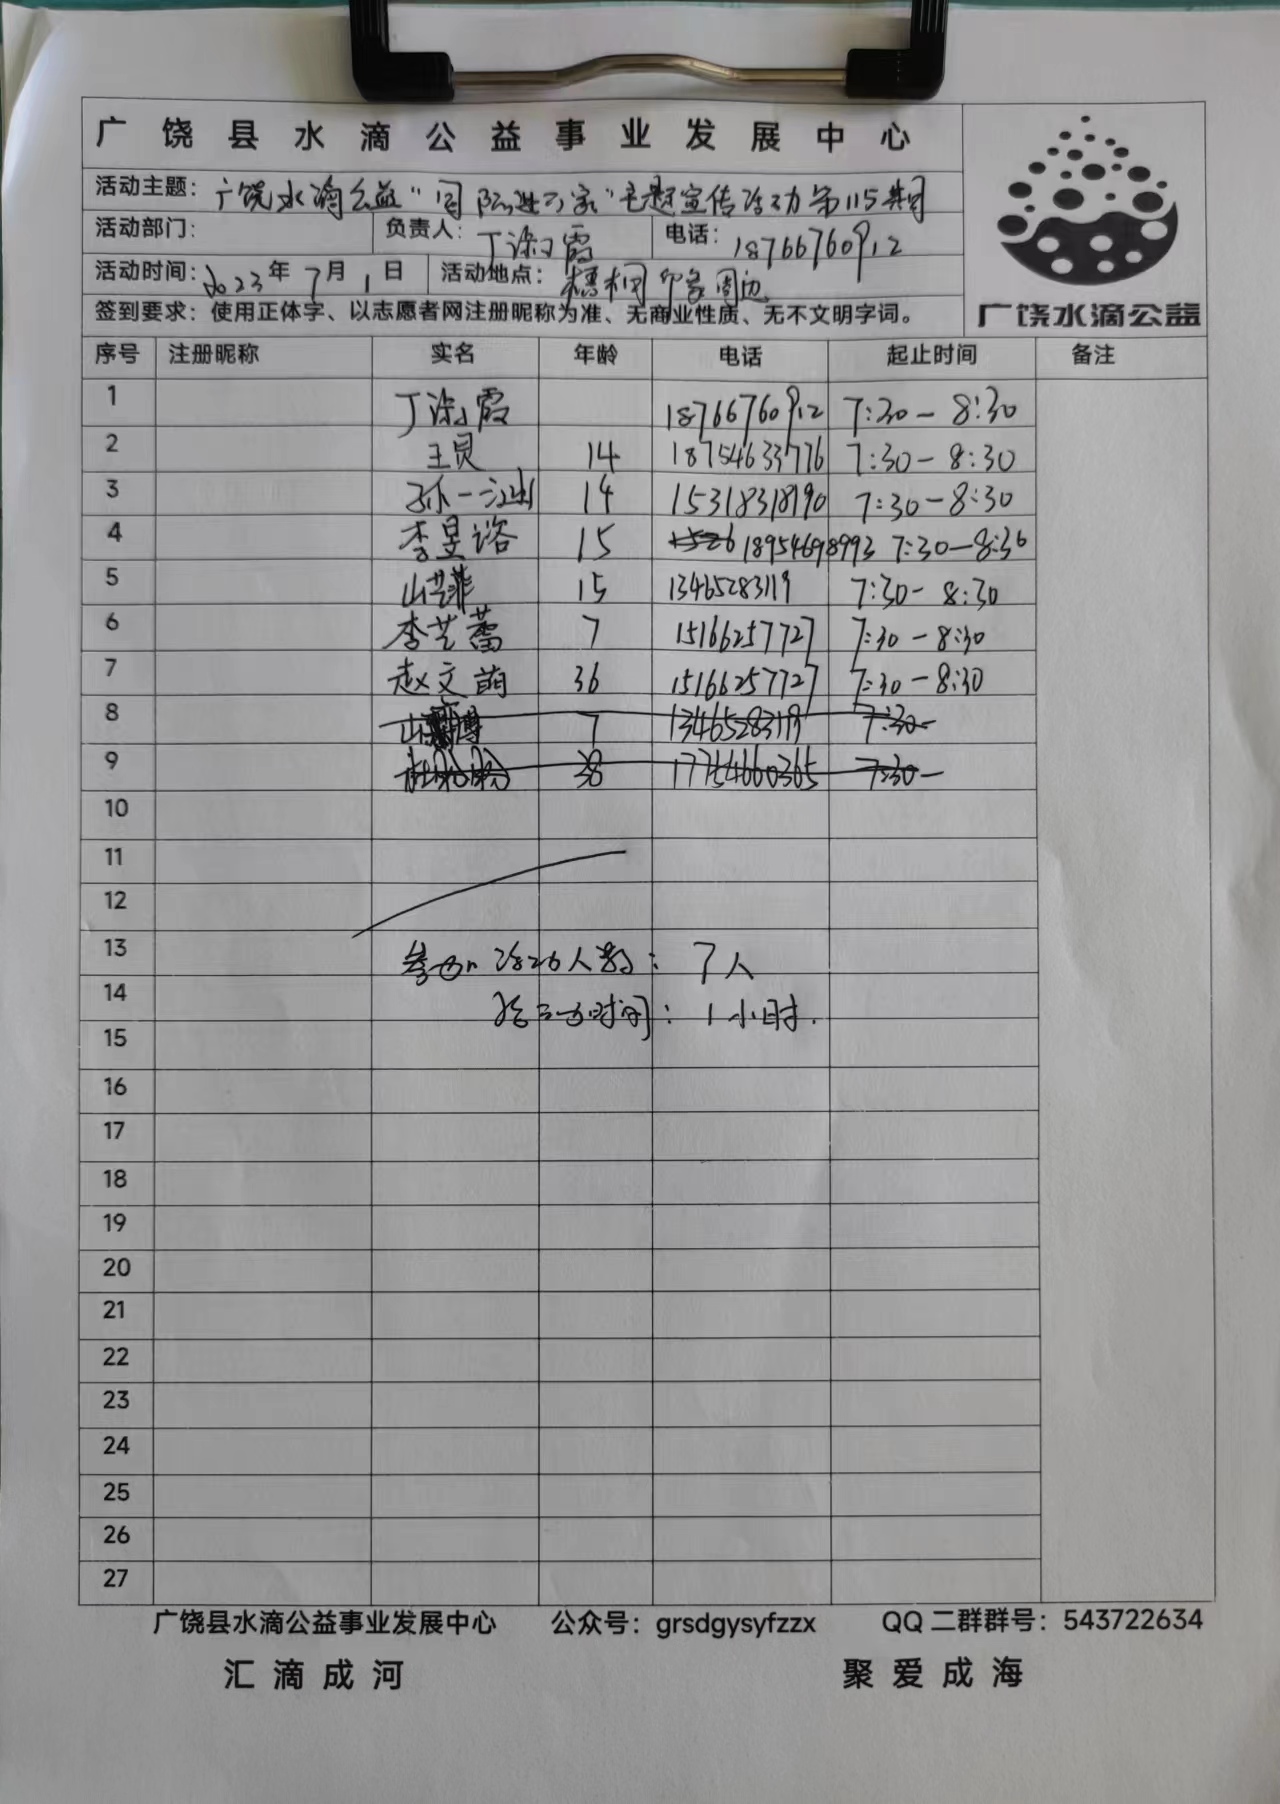 广饶县水滴公益事业发展中心
活动主题：广饶水滴公益" 进万家"主题宣传活动第115期
活动部门： 负责人：丁 霞 电话：18766760912
活动时间：2023年7月1日 活动地点： 印象周边
签到要求：使用正体字、以志愿者网注册昵称为准、无商业性质、无不文明字词。
广饶水滴公益
序号 注册昵称 实名 年龄 电话 起止时间 备注
1 丁 霞 18766760912 7:30-8:30
2 王 14 18754633776 7:30-8:30
3 孙一 14 15318318190 7:30-8:30
4 李昱 15 1526 18954698993 7:30-8:30
5 山 菲 15 13465283119 7:30-8:30
6 李艺蕾 7 15166257727 7:30-8:30
7 赵文萌 36 15166257727 7:30-8:30
8 山 博 7 13465283119 7:30-
9 38 17754660365 7:30-
10
11
12
13 参加活动人数：7人
14 活动时间：1小时.
15
16
17
18
19
20
21
22
23
24
25
26
27
广饶县水滴公益事业发展中心 公众号：grsdgysyfzzx QQ二群群号：543722634
汇滴成河 聚爱成海